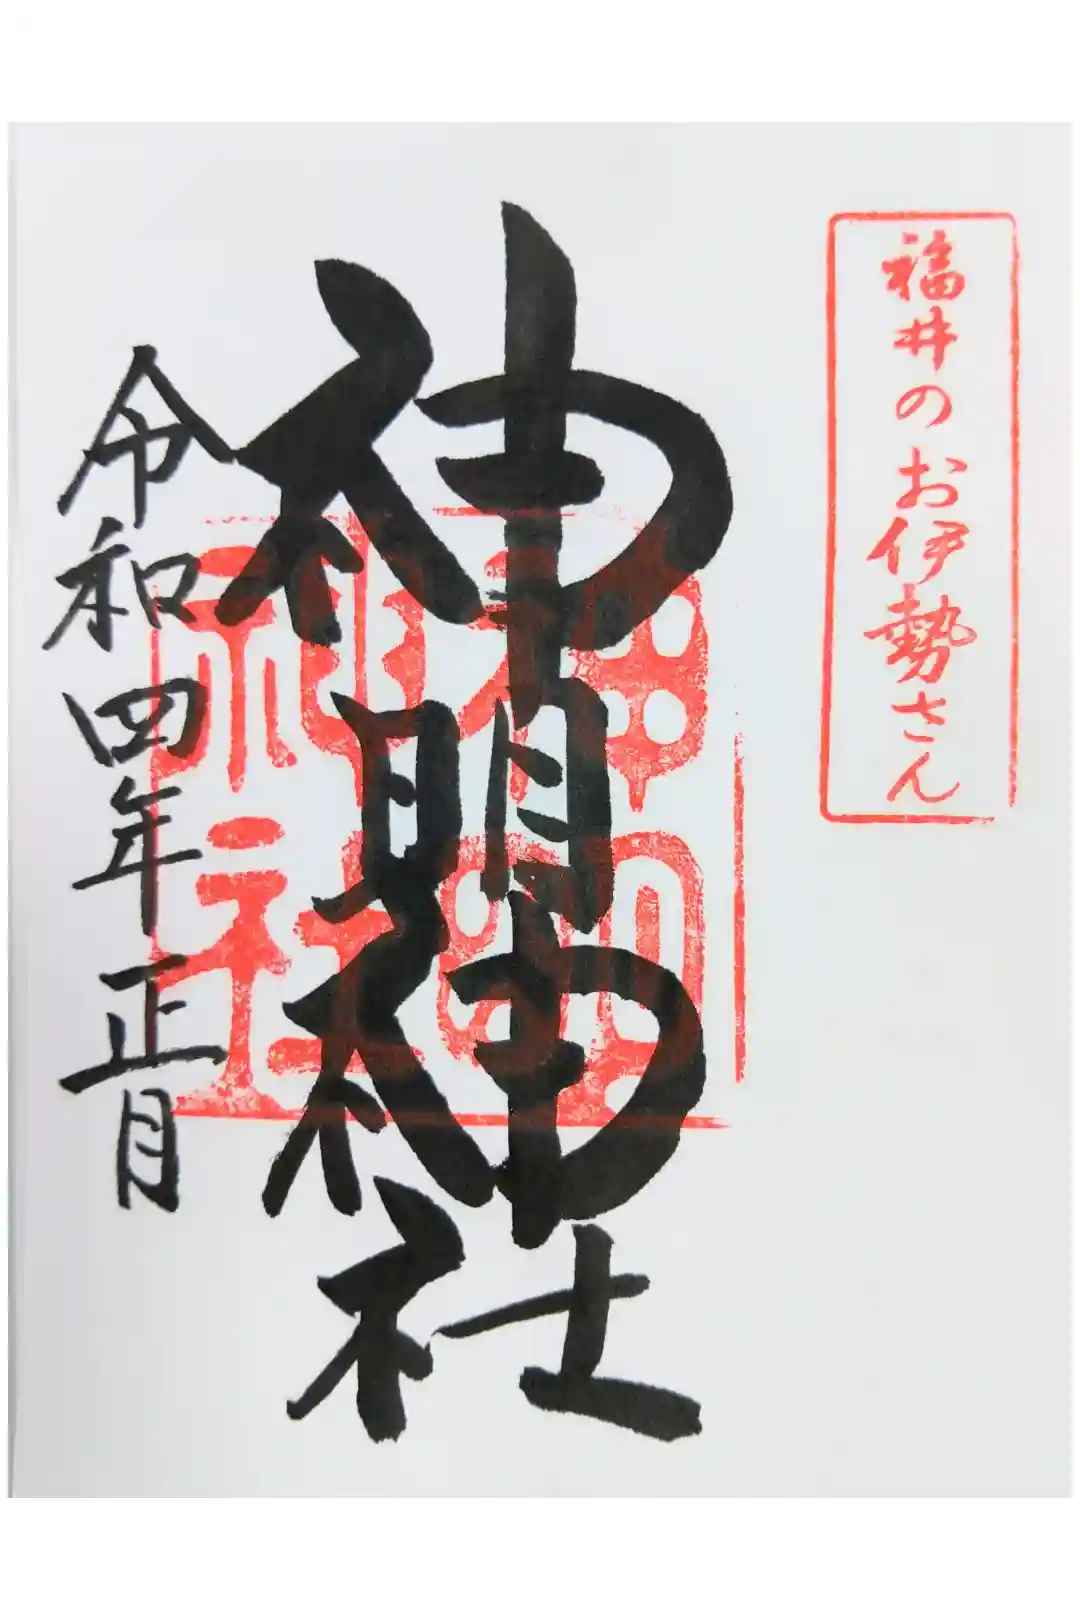 福井のお伊勢さん
神明神社
神明神社
令和四年正月